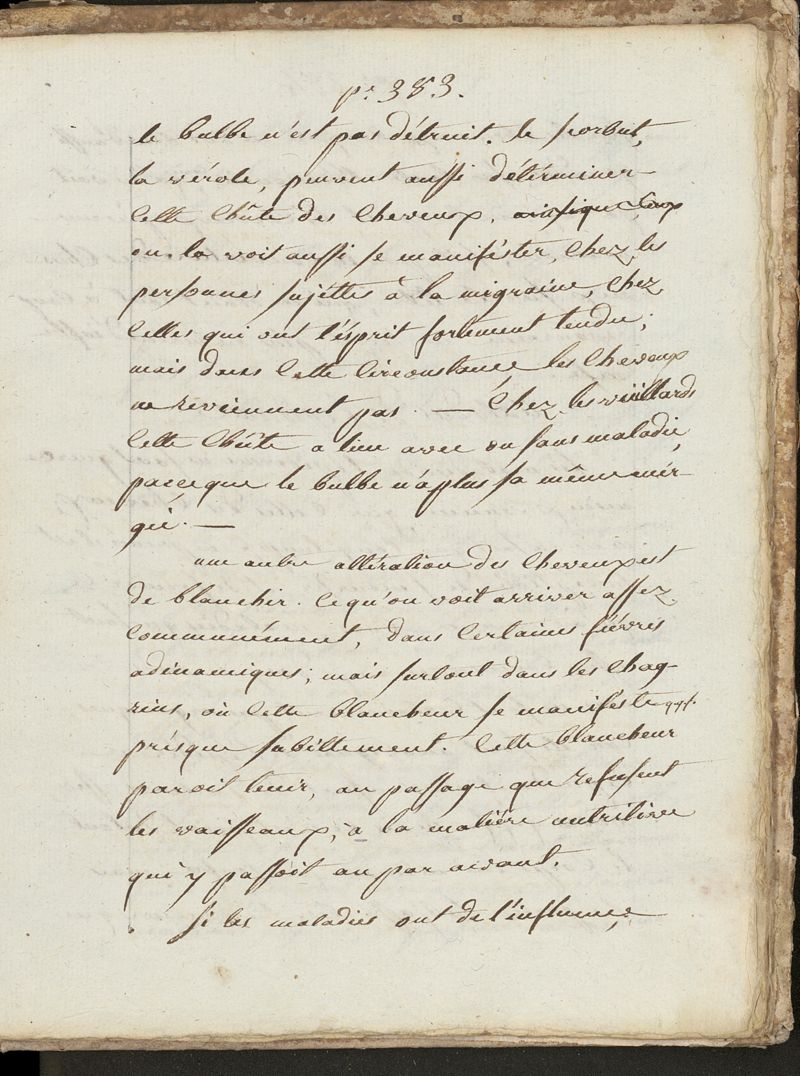 pe 383.
le bulbe n'est pas détruit. le scorbut,
la vérole, peuvent aussi détérminer
cette chûte des cheveux,
on la voit aussi se manifester, chez les
personnes sujettes à la migraine, chez
celles qui ont l'ésprit fortement tendu;
mais dans cette circonstance les cheveux
ne reviennent pas. — chez les vieillards
cette chûte a lieu avec ou sans maladie,
parceque le bulbe n'a plus sa même énér-
gié. —
une autre altération des cheveux est
de blanchir. ce qu'on voit arriver assez
communément, dans certaines fiévres
adinamiques; mais surtout dans les chag-
rins, où cette blancheur se manifeste
présque subittement. cette blancheur
paroit tenir, au passage que refusent
les vaisseaux, à la matiére nutritive
qui y passoit au par avant.
si les maladies ont de l'influence